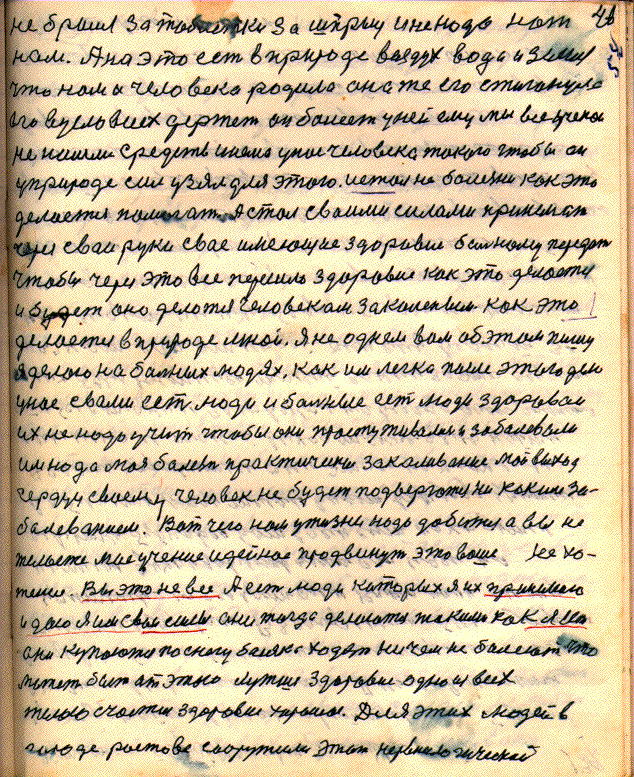 не брал за таблетки за шприц и не надо нам 46
нам. А на это ест в природе воздух вода и земля 54
что нам а человека родила она же его стиганула
его в условиех держет он болеет у ней ему мы все ученаи
не нашли средств и нема у нас человека такого чтобы он
у природе сил узял для этого. и стал на болезни как это
делается помогат. А стал своими силами принимат
через сваи руки свае имеющие здоровие болному передат
чтобы через это все пришло здоровие как это делается
и будет оно делатся человекам закаленым как это
делается в природе мной. Я не однем вам об этом пишу
я делаю на болних людях, как им легко после этого ден
у нас с вами ест люди и болные ест люди здороваи
их не надо учит чтобы они простуживалися и заболевали
им нада моя болеть практически закаливание мой выход
сердцу своему человек не будет подвергатся ни каким за-
балеванием. Вот чего нам у жизни надо добится а вы не
желаете мае учение идейное продвинут это ваше не хо-
тение. Вы это не все А ест люди каторых я их принимаю
и даю я им сваи силы они тогда делаются такими как я Ив
они купаются по снегу босяка ходят ничем не болеют что
может быт от этого лутши здоровие одно и всех
тело счастя здоровие хорошее. Для этих людей в
городе ростове сооружили этот неврологической